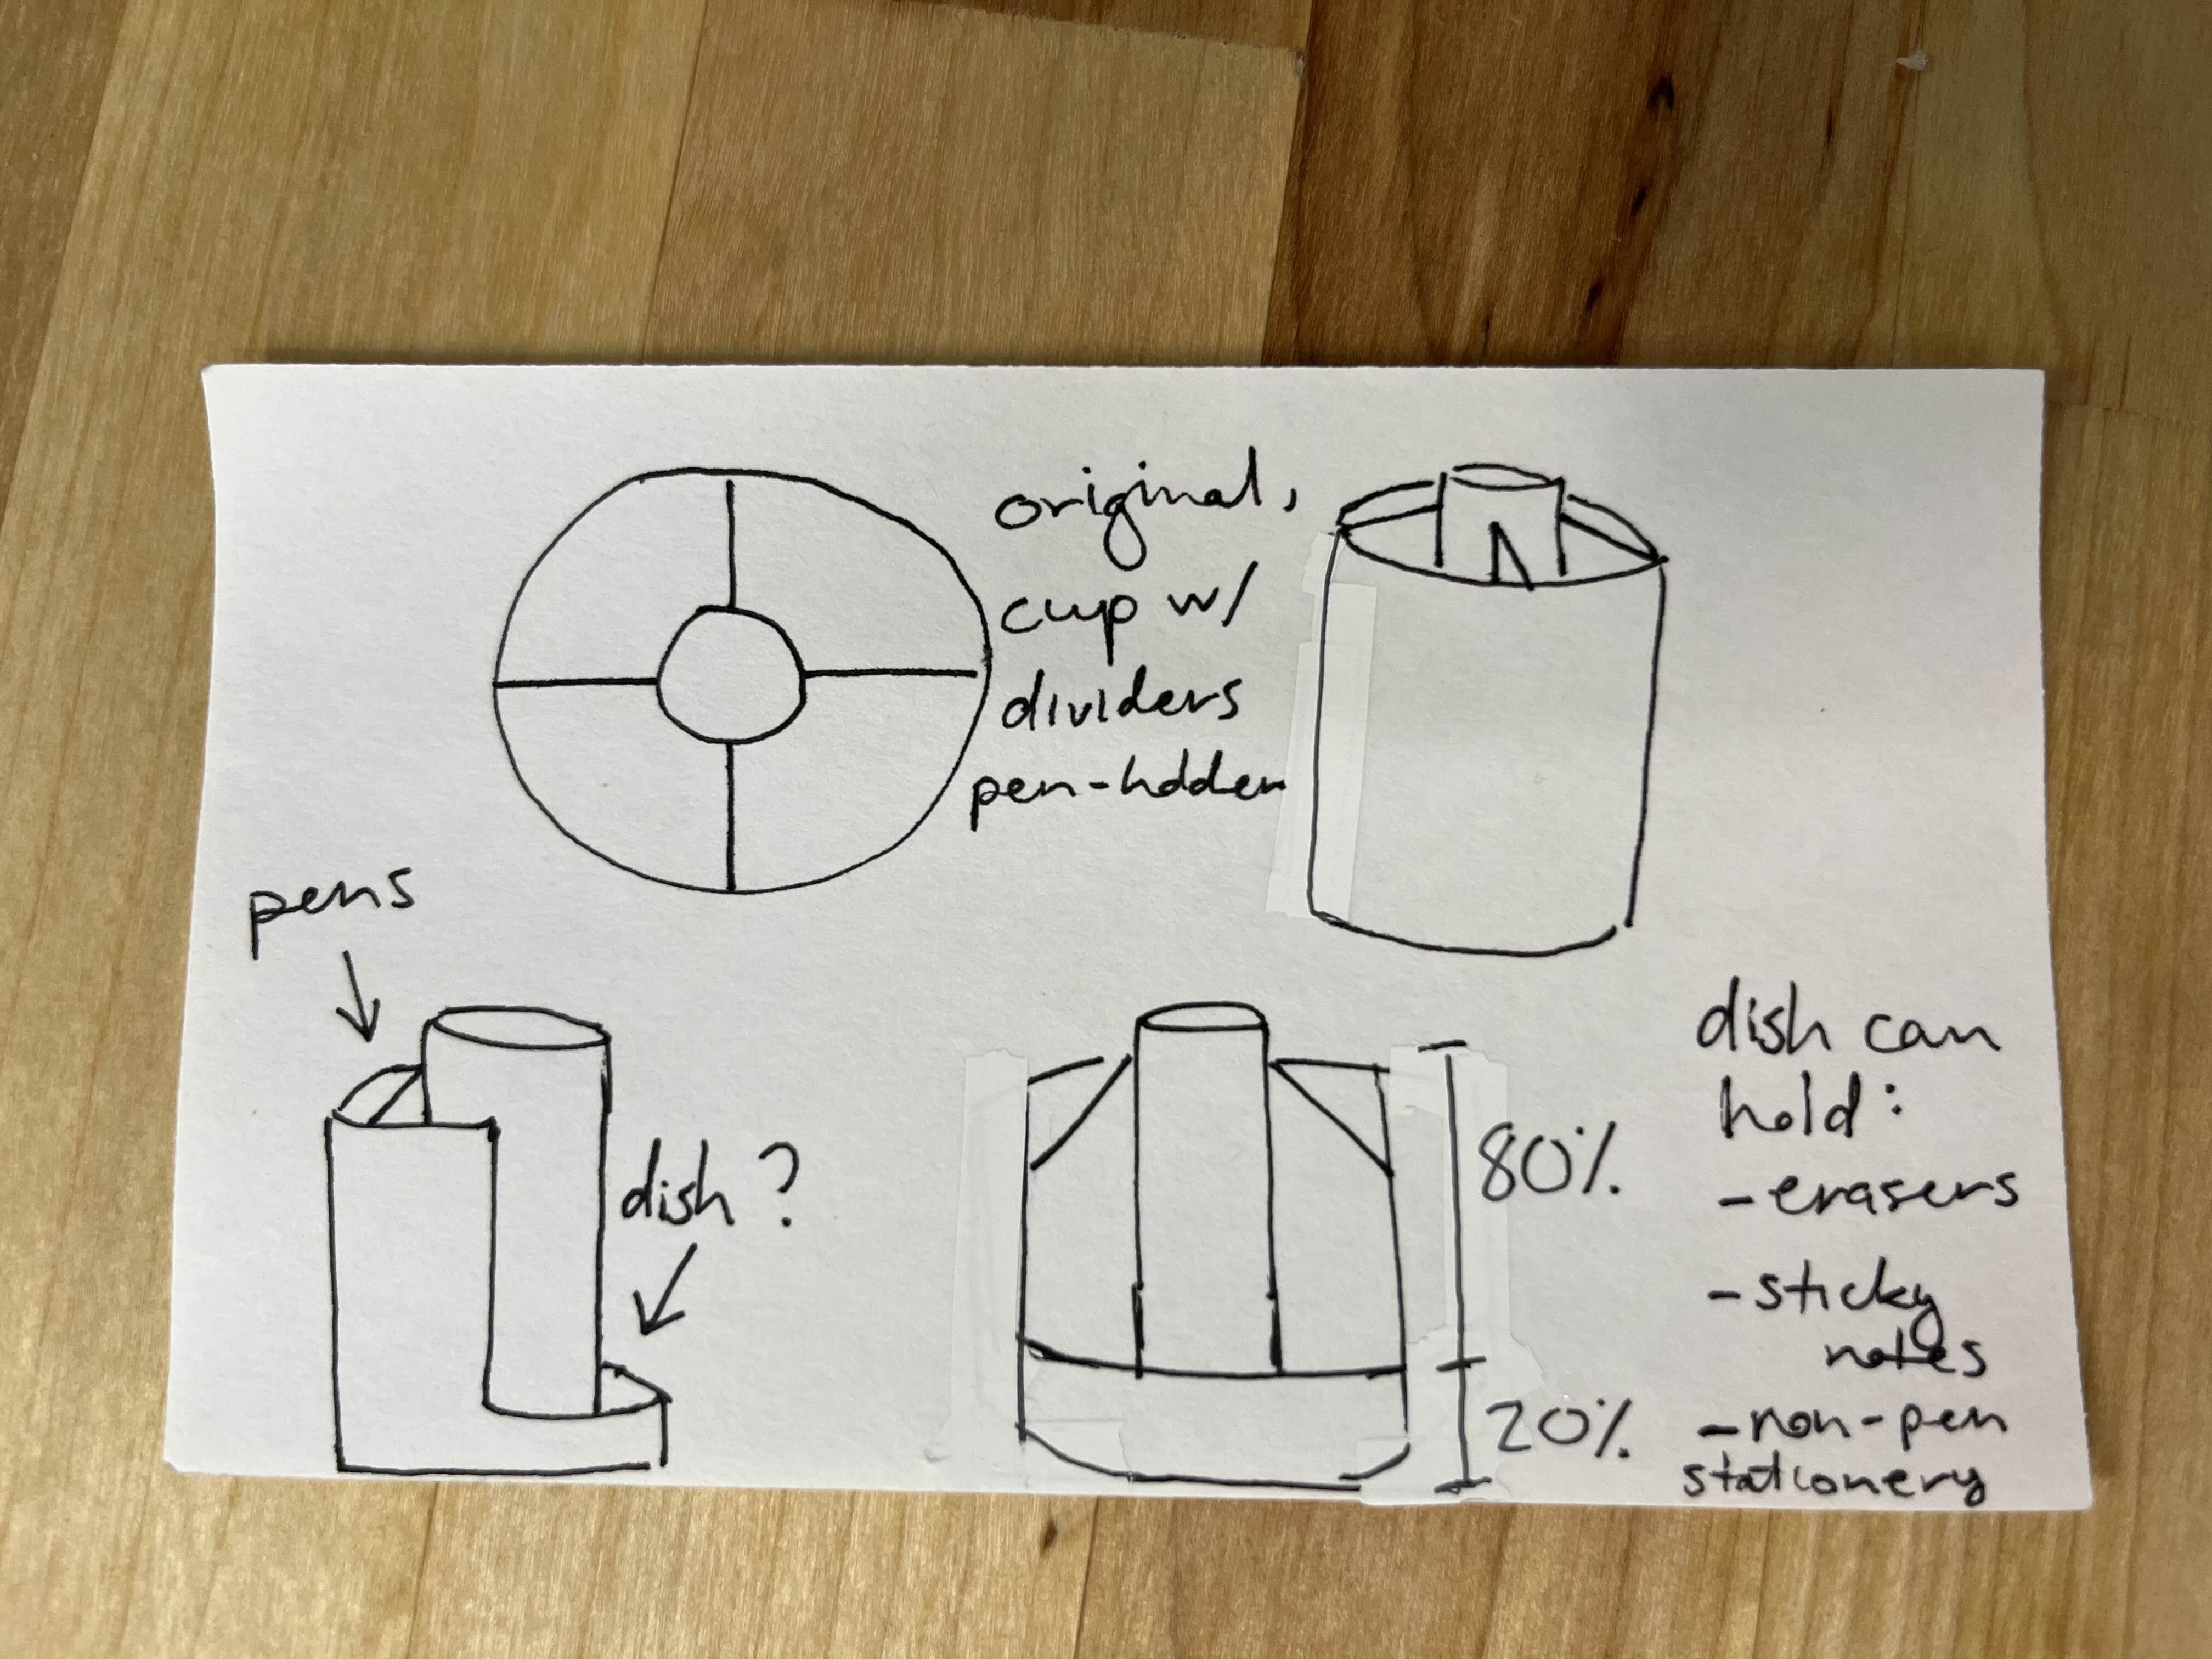 original,
cup w/
dividers
pen-holder
pens
dish?
80%
20%
dish can
hold:
- erasers
- sticky
notes
- non-pen
stationery